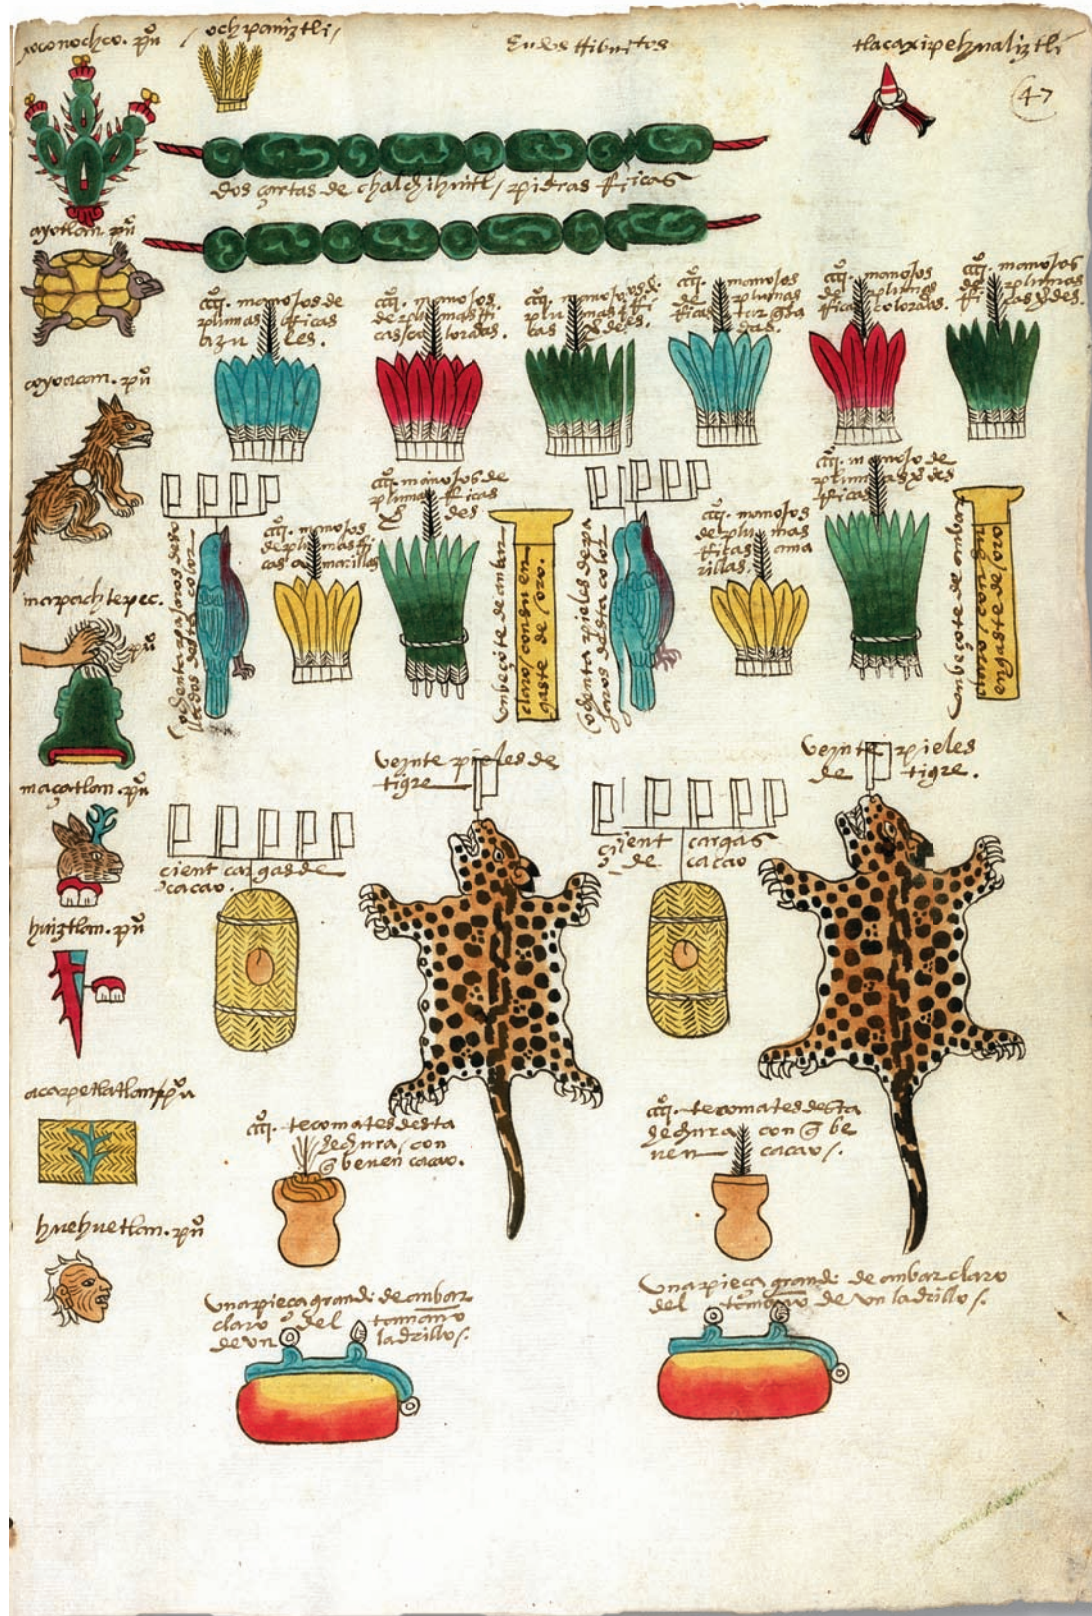 xoconochco. pu°
ochpaniztli
En dos tributos
tlacaxipehualiztli
47
dos çartas de chalchihuitl / piedras ricas
ayotlan pu°
cccc. manojos de
plumas rricas
azules.
cccc. manojos
de plumas rri
cas coloradas.
cccc. manojos de
plumas rri
cas verdes.
cccc. manojos
de plumas
rricas turquesa
das.
cccc. manojos
de plumas
rricas coloradas.
cccc. manojos
de plumas
rricas verdes.
coyoacan. pu°
cccc. manojos de
plumas rricas
verdes
cccc. manojo de
plumas verdes
rricas
ochenta paxaros deso
llados desta color
cccc. manojos
de plumas rri
cas amarillas
un beçote de ambar
claro con su en
gaste de oro.
ochenta pieles de pa
xaros desta color
cccc. manojos
de plumas
rricas ama
rillas.
un beçote de ambar
claro / con su
engaste de oro
mapachtepec.
pu°
maçatlan. pu°
veynte pieles de
tigre
veynte pieles
de tigre.
cient cargas de
cacao.
cient cargas
de cacao
huiztlan. pu°
acapetlatlan / pu°
cccc. tecomates desta
hechura / con
q̃ beuen cacao.
cccc. tecomates desta
hechura con q̃ be
uen cacao /.
huehuetlan. pu°
una pieça grande de ambar
claro del tamaño
de un ladrillo /.
una pieça grande de ambar claro
del tamaño de un ladrillo /.